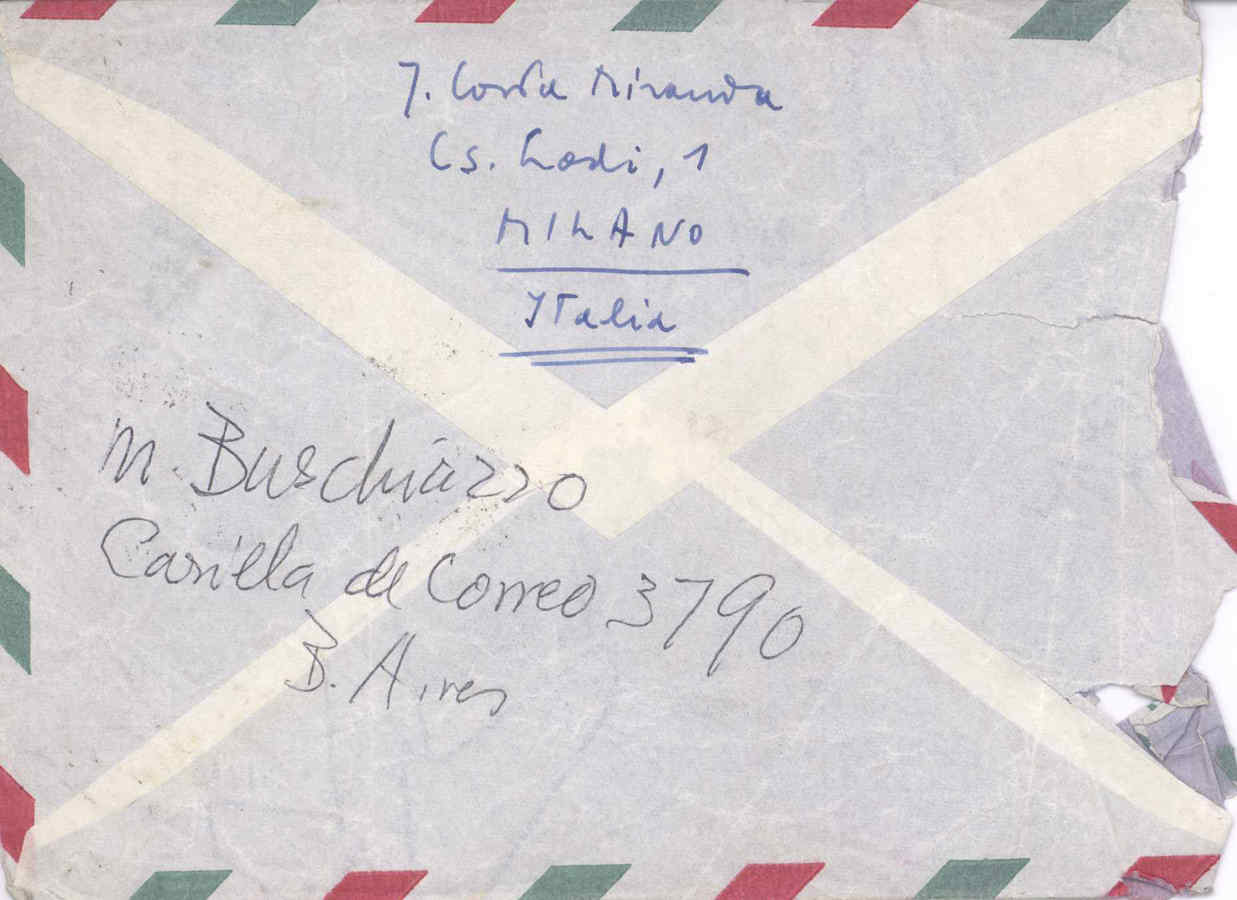 J. Costa Miranda
Cs. Lodi, 1
MILANO
Italia
M. Buschiazzo
Casilla de Correo 3790
B. Aires